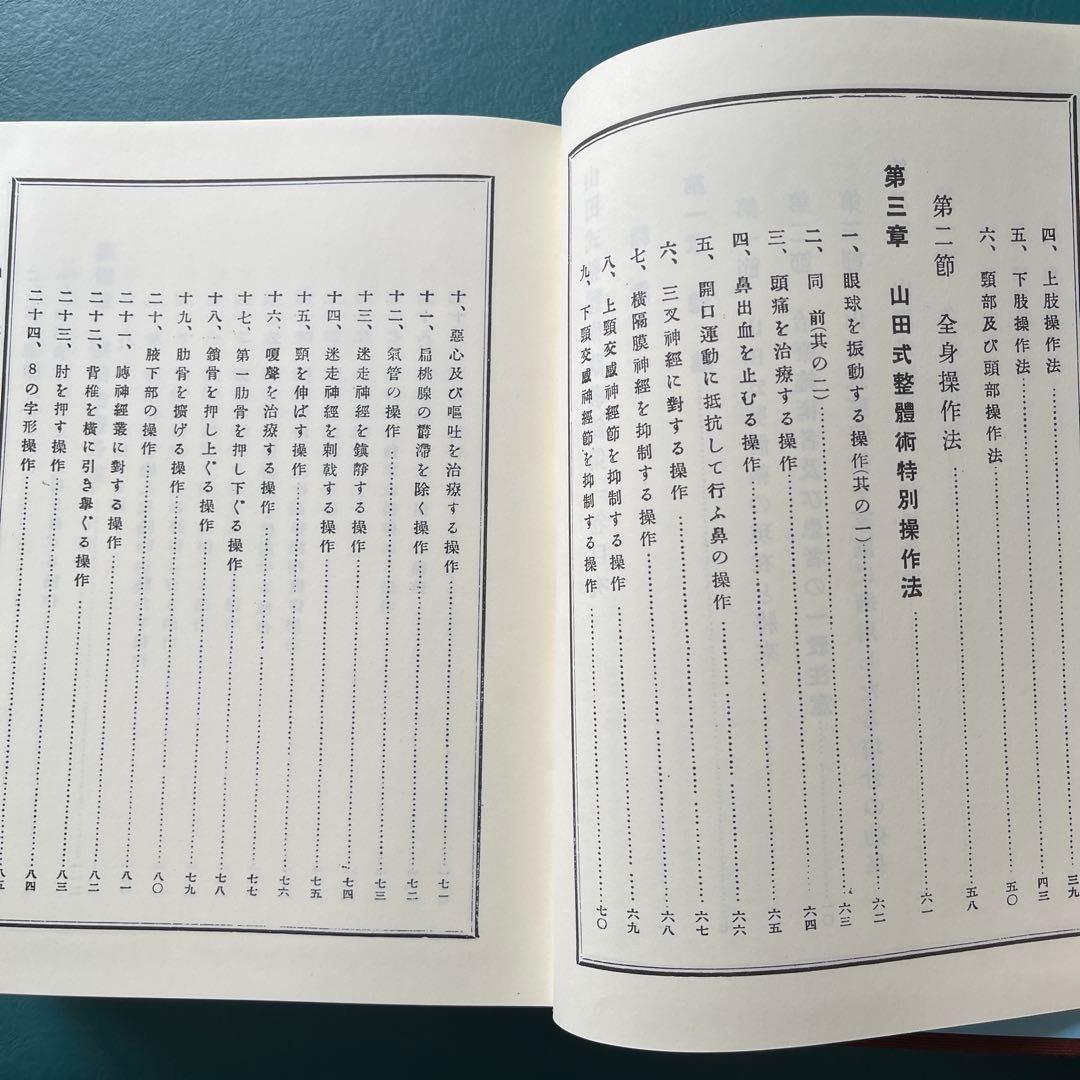 四、上肢操作法……三九
五、下肢操作法……四三
六、頸部及び頭部操作法……五〇
第二節 全身操作法……五八
第三章 山田式整體術特別操作法……六一
一、眼球を振動する操作(其の一)……六二
二、同 前(其の二)……六三
三、頭痛を治療する操作……六四
四、鼻出血を止むる操作……六五
五、開口運動に抵抗して行ふ鼻の操作……六六
六、三叉神經に對する操作……六七
七、橫隔膜神經を抑制する操作……六八
八、上頸交感神經節を抑制する操作……六九
九、下頸交感神經節を抑制する操作……七〇
十、惡心及び嘔吐を治療する操作……七一
十一、扁桃腺の欝滯を除く操作……七二
十二、氣管の操作……七三
十三、迷走神經を鎭靜する操作……七四
十四、迷走神經を刺戟する操作……七五
十五、頸を伸ばす操作……七六
十六、嗄聲を治療する操作……七七
十七、第一肋骨を押し下ぐる操作……七八
十八、鎖骨を押し上ぐる操作……七九
十九、肋骨を擴げる操作……八〇
二十、腋下部の操作……八一
二十一、膊神經叢に對する操作……八二
二十二、背椎を橫に引き擧ぐる操作……八三
二十三、肘を押す操作……八四
二十四、8の字形操作……八五